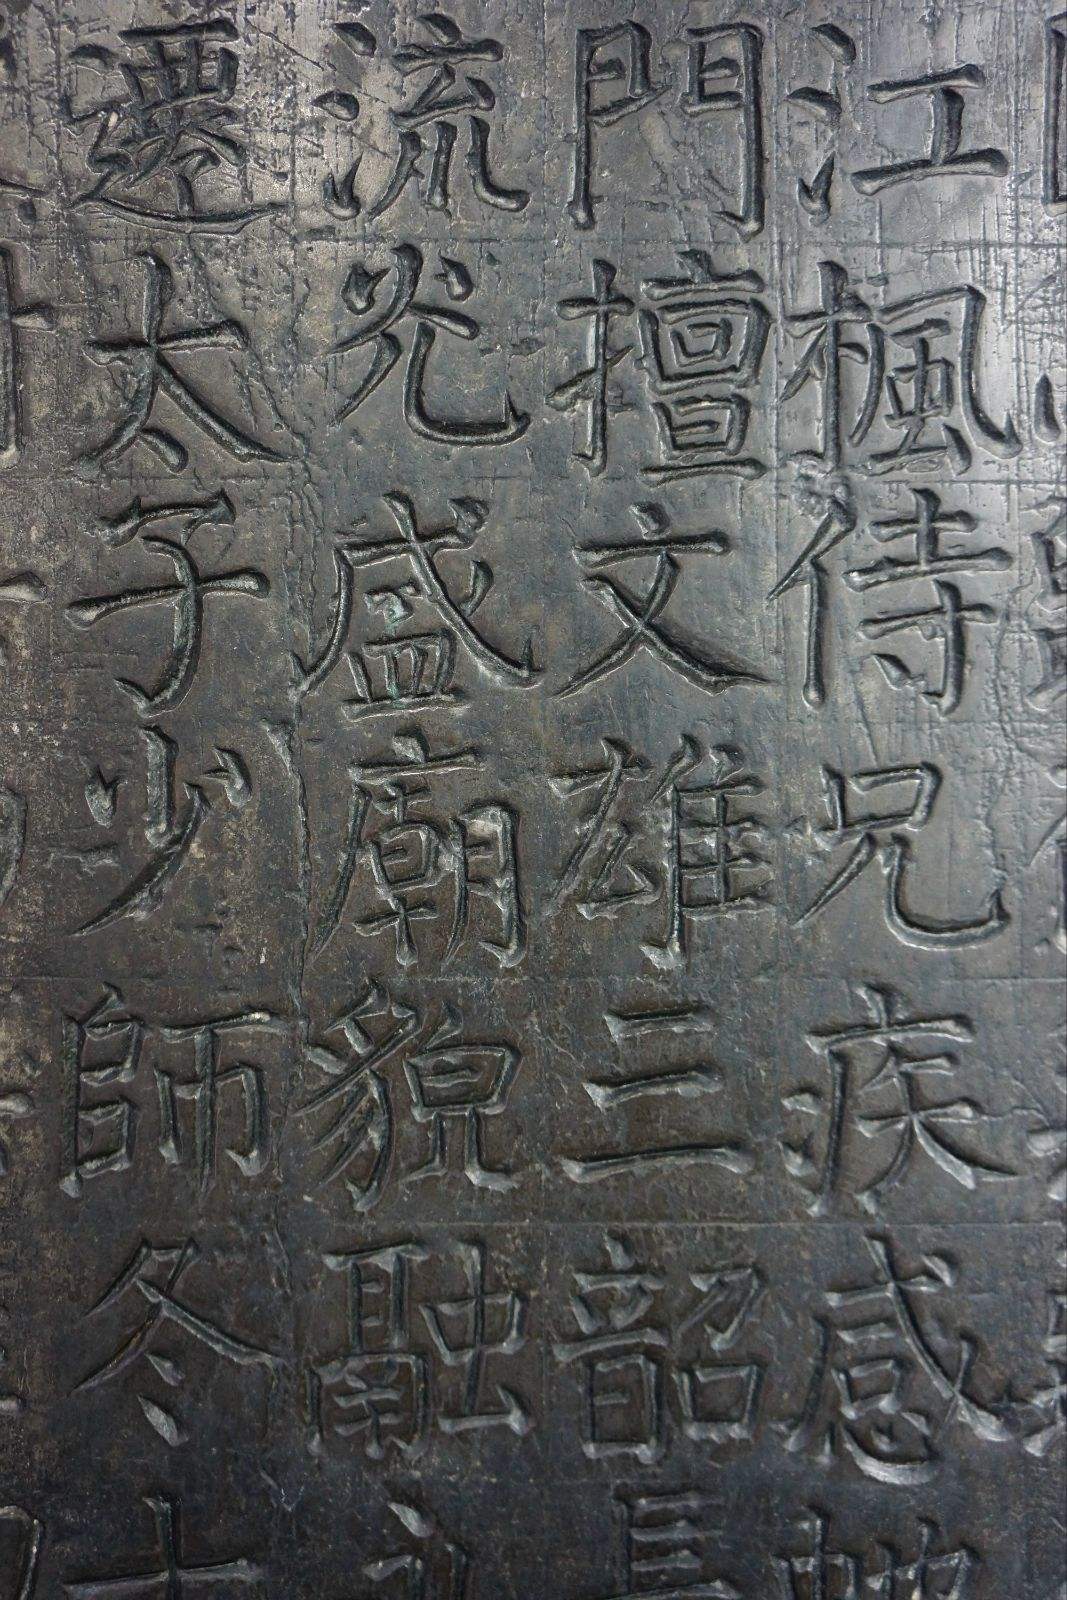 江楓侍兄疾感
門擅文雄三韶長
流光盛廟貌融
遷太子少師冬十